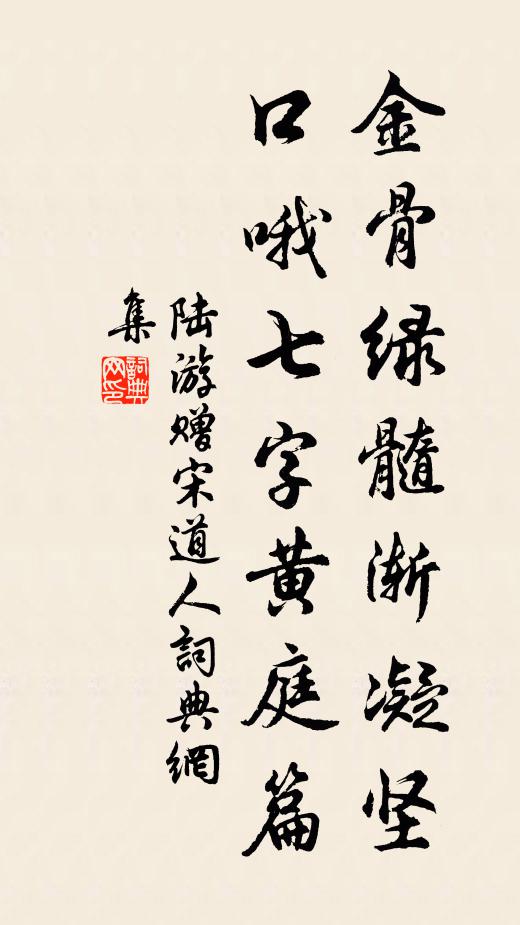 金骨绿髓渐凝坚
口哦七字黄庭篇
陆游赠宋道人詞典網
集
詞典网印